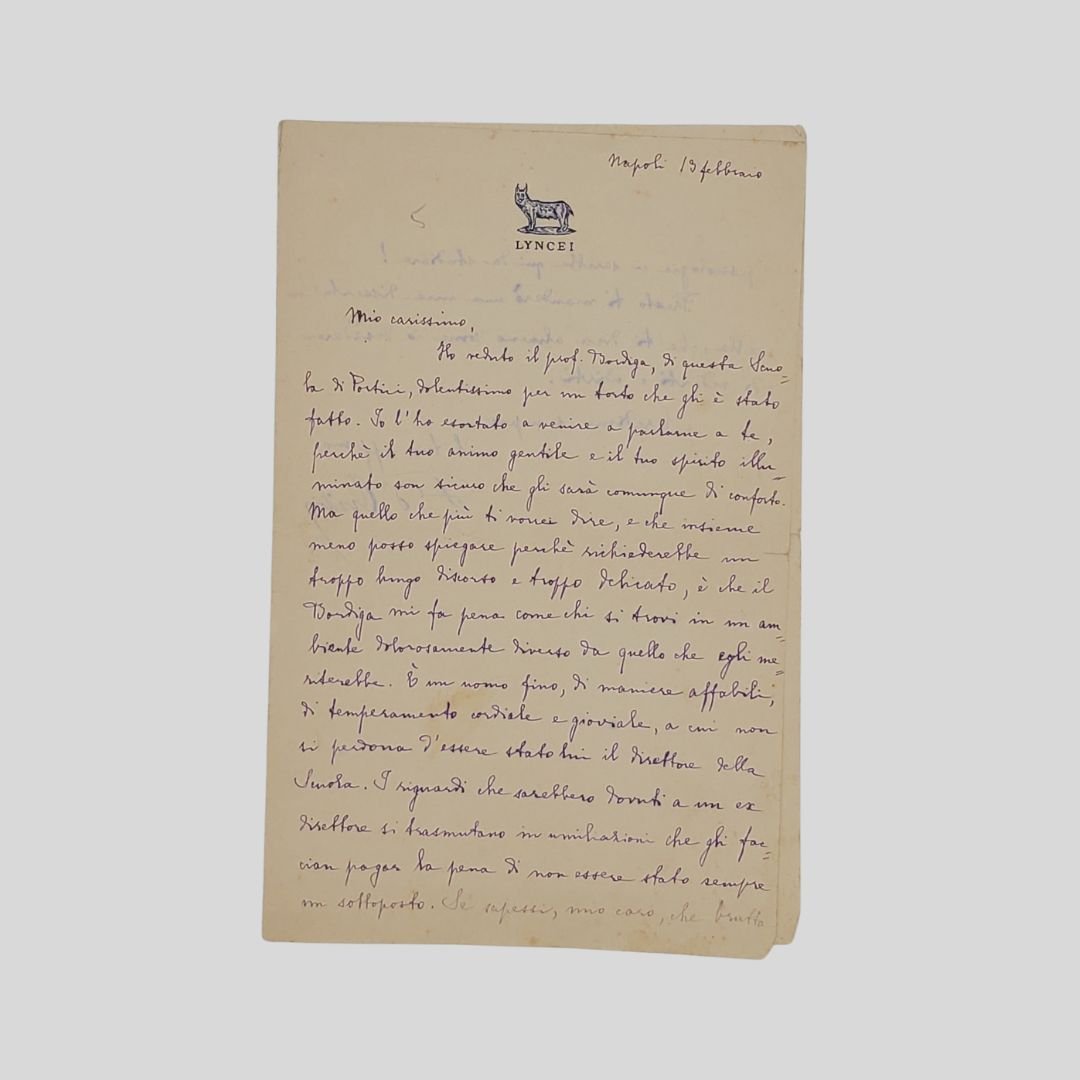 Napoli 13 febbraio
LYNCEI
Mio carissimo,
Ho veduto il prof. Bordiga, di questa Scuo=
la di Portici, dolentissimo per un torto che gli è stato
fatto. Io l'ho esortato a venire a parlarne a te,
perchè il tuo animo gentile e il tuo spirito illu=
minato son sicuro che gli sarà comunque di conforto.
Ma quello che più ti vorrei dire, e che insieme
meno posso spiegare perchè richiederebbe un
troppo lungo discorso e troppo delicato, è che il
Bordiga mi fa pena come chi si trovi in un am=
biente dolorosamente diverso da quello che egli me=
riterebbe. È un uomo fino, di maniere affabili,
di temperamento cordiale e gioviale, a cui non
si perdona d'essere stato lui il direttore della
Scuola. I riguardi che sarebbero dovuti a un ex
direttore si trasmutano in umiliazioni che gli fac=
cian pagar la pena di non essere stato sempre
un sottoposto. Se sapessi, mio caro, che brutta